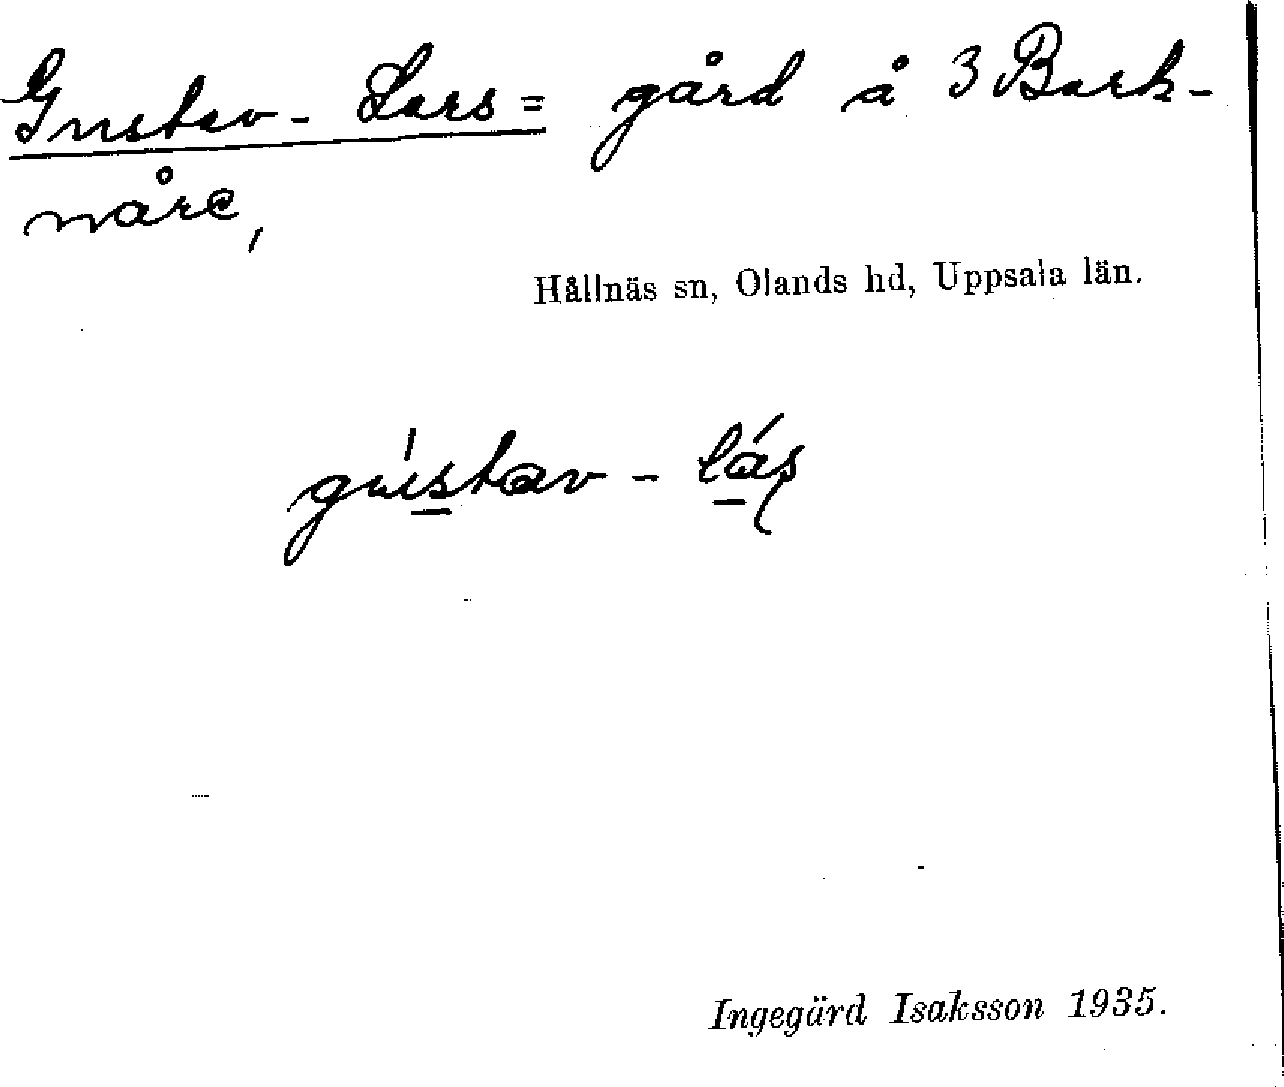 Gustav-Lars= gård å 3 Bark-
nåre,
Hållnäs sn, Olands hd, Uppsala län.
gústav - lás
Ingegärd Isaksson 1935.